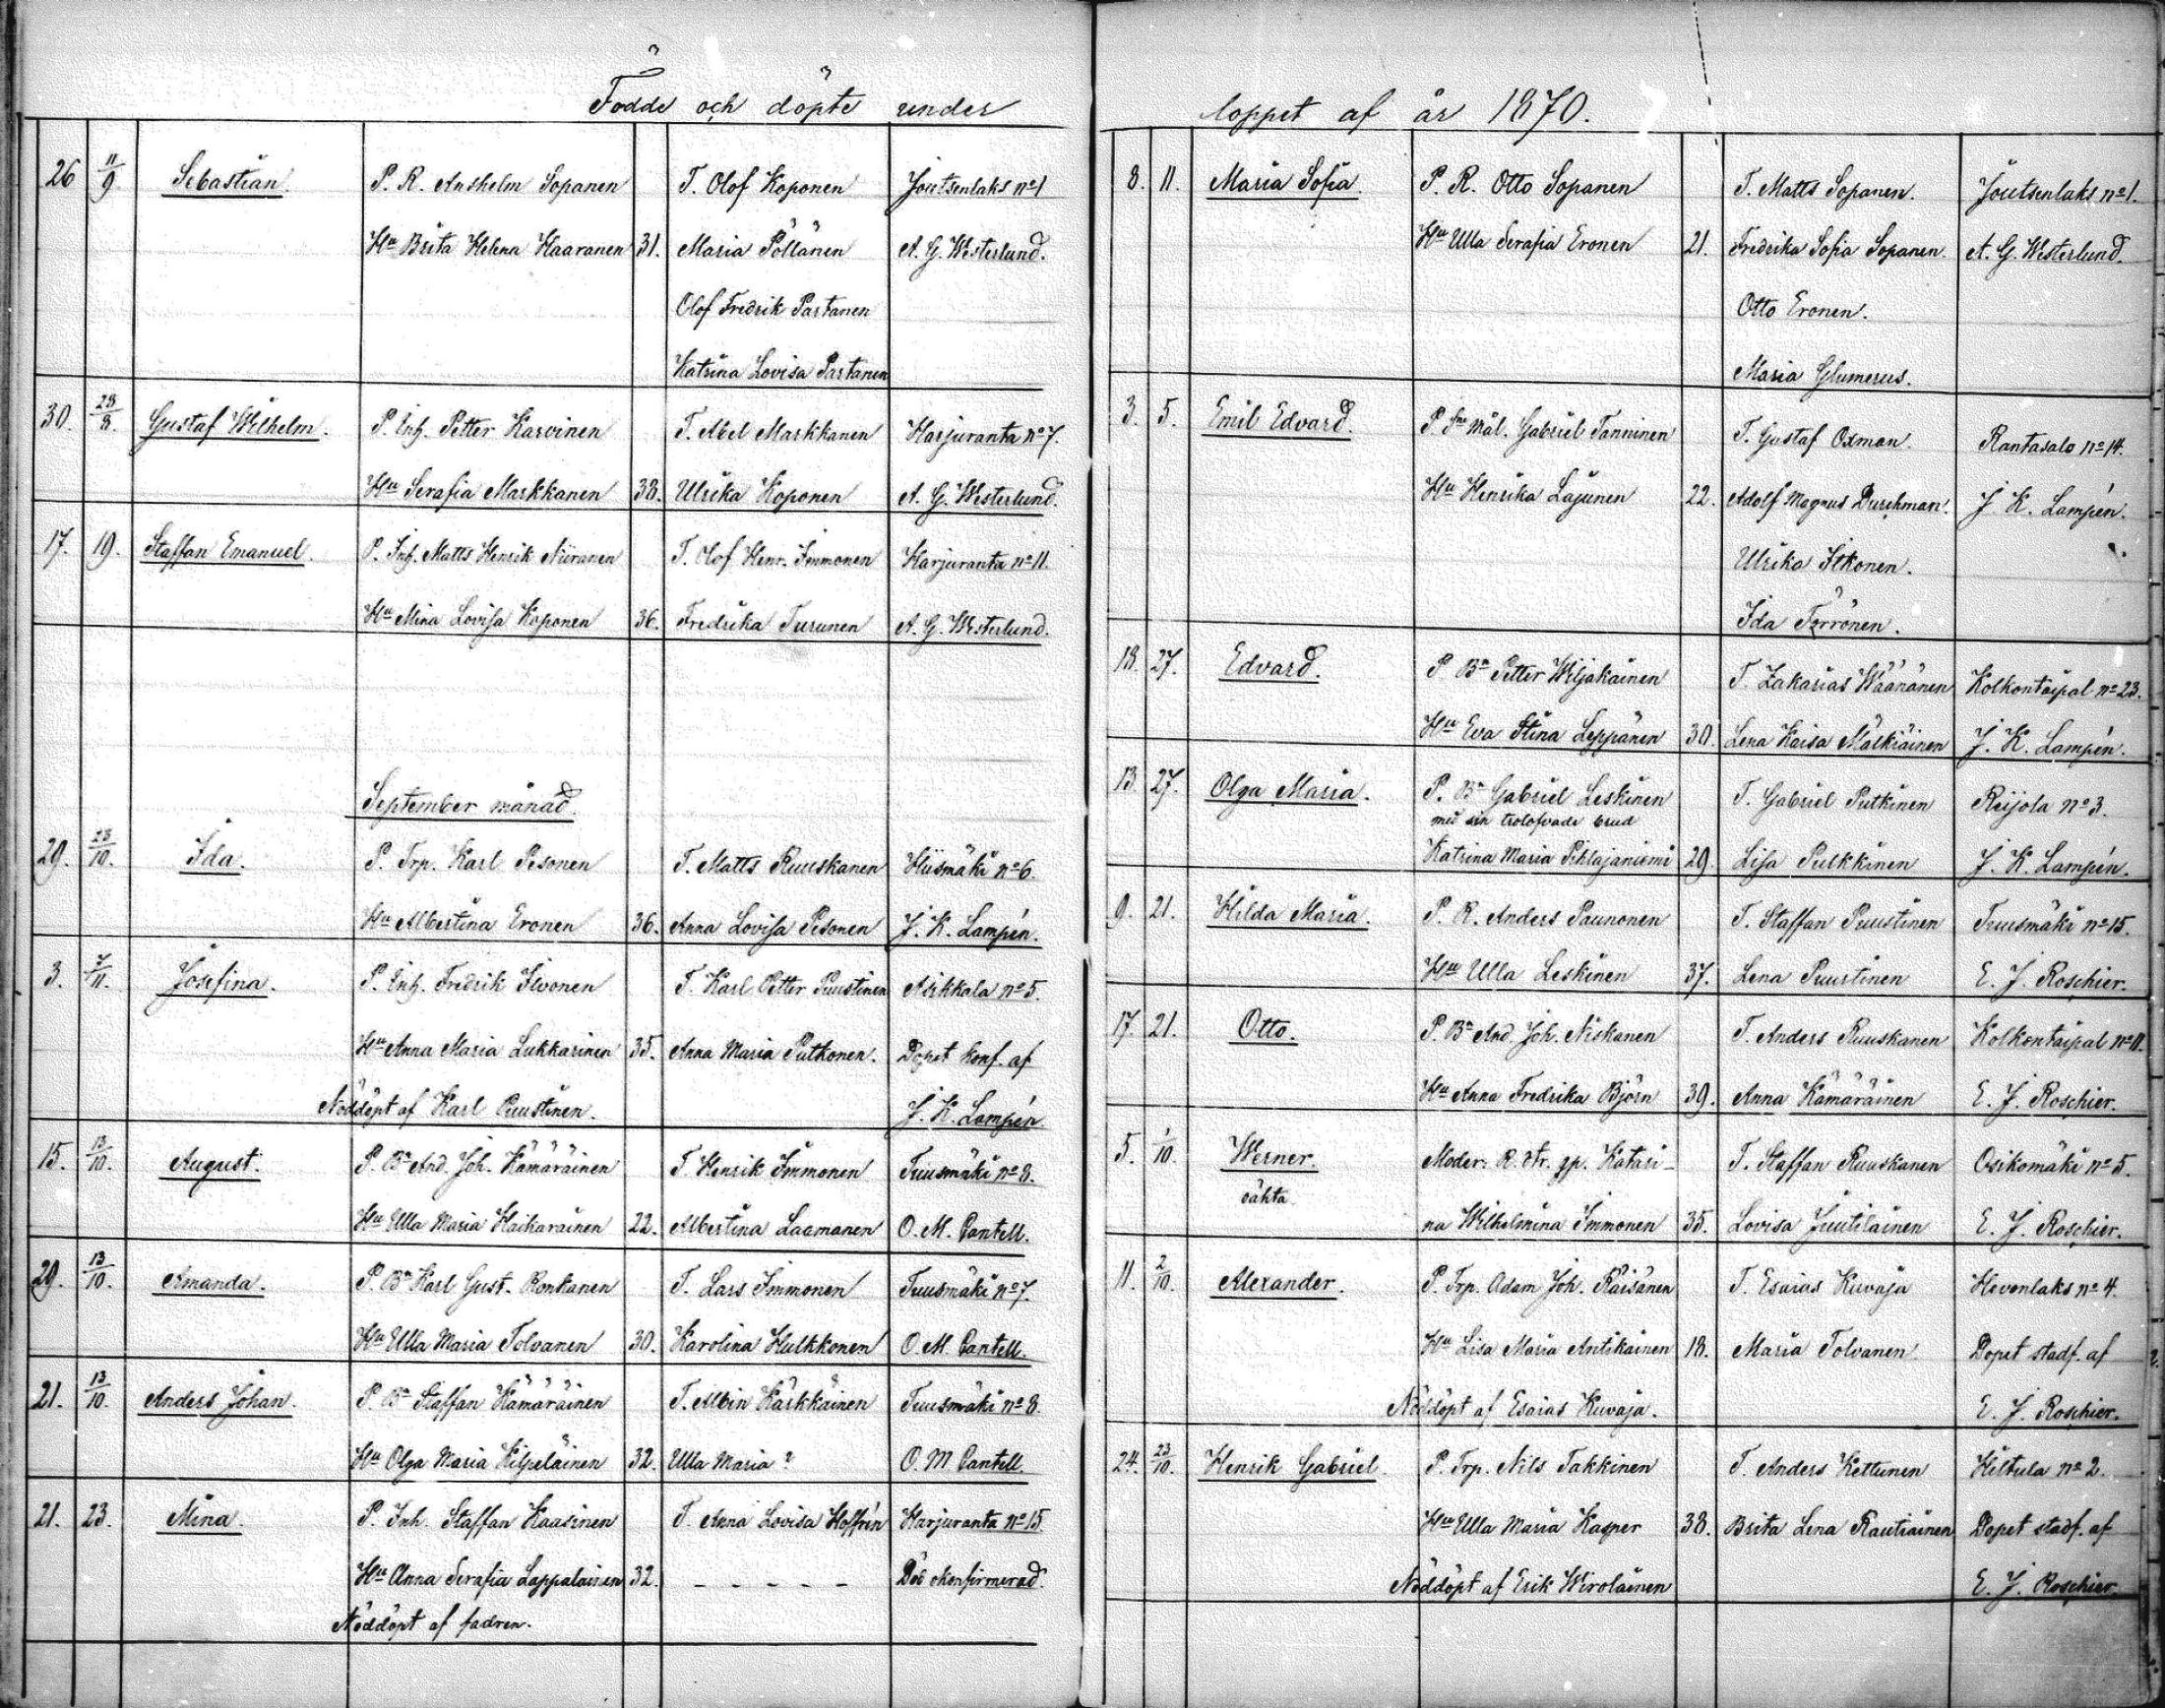 Födde och döpte under
26 11/9 Sebastian. P. R. Anshelm Sopanen T. Olof Koponen Joutsenlaks no 1
Hu Brita Helena Haaranen 31. Maria Pöllänen A. G. Westerlund.
Olof Fredrik Partanen
Katrina Lovisa Partanen
30. 28/8. Gustaf Wilhelm. P. Inh. Petter Karvinen T. Abel Markkanen Harjuranta no 7.
Hu Serafia Markkanen 38. Ulrika Koponen A. G. Westerlund.
17. 19. Staffan Emanuel. P. Inh. Matts Henrik Niiranen T. Olof Henr. Immonen Harjuranta no 11.
Hu Mina Lovisa Koponen 36. Fredrika Turunen A. G. Westerlund.
September månad.
29. 23/10. Ida. P. Trp. Karl Pesonen T. Matts Ruuskanen Hiismäki no 6.
Hu Albertina Eronen 36. Anna Lovisa Pesonen J. K. Lampén.
3. 7/11. Josefina. P. Inh. Fredrik Ilvonen T. Karl Petter Puustinen Asikkala no 5.
Hu Anna Maria Lukkarinen 35. Anna Maria Putkonen. Dopet konf. af
Nöddöpt af Karl Puustinen. J. K. Lampén
15. 13/10. August. P. Bn And. Joh. Kämäräinen T. Henrik Immonen Tuusmäki no 8.
Hu Ulla Maria Haikarainen 22. Albertina Laamanen O. M. Cantell.
29. 13/10. Amanda. P. Bn Karl Gust. Ronkanen T. Lars Immonen Tuusmäki no 7.
Hu Ulla Maria Tolvanen 30. Karolina Hulkkonen O. M. Cantell.
21. 13/10. Anders Johan. P. Bn Staffan Kämäräinen T. Albin Kärkkäinen Tuusmäki no 8.
Hu Olga Maria Kilpeläinen 32. Ulla Maria? O. M Cantell.
21. 23. Mina. P. Inh. Staffan Kaasinen T. Anna Lovisa Hoffrén Harjuranta no 15
Hu Anna Serafia Lappalainen 32. - - - - - Död okonfirmerad.
Nöddöpt af fadren.
loppet af år 1870.
8. 11. Maria Sofia. P. R. Otto Sopanen T. Matts Sopanen. Joutsenlaks no 1.
Hu Ulla Serafia Eronen 21. Fredrika Sofia Sopanen. A. G. Westerlund.
Otto Eronen.
Maria Glumerus.
3. 5. Emil Edvard. P. Mål. Gabriel Tanninen T. Gustaf Oxman. Rantasalo no 14.
Hu Henrika Lajunen 22. Adolf Magnus Durchman. J. K. Lampén.
Ulrika Itkonen.
Ida Törrönen.
18. 27. Edvard. P. Bn Petter Wiljakainen T. Zakarias Wäänänen Kolkontaipal no 23.
Hu Eva Stina Leppänen 30. Lena Kaisa Mälkiäinen J. K. Lampén.
13. 27. Olga Maria. P. Bn Gabriel Leskinen T. Gabriel Putkinen Reijola no 3.
med sin trolofvade brud
Katrina Maria Pihlajaniemi 29. Lisa Pulkkinen J. K. Lampén.
9. 21. Hilda Maria. P. R. Anders Paunonen T. Staffan Puustinen Tuusmäki no 15.
Hu Ulla Leskinen 37. Lena Puustinen E. J. Roschier.
17. 21. Otto. P. Bn And. Joh. Niskanen T. Anders Ruuskanen Kolkontaipal no 11.
Hu Anna Fredrika Björn 39. Anna Kämäräinen E. J. Roschier.
5. 1/10. Werner. Moder: R. dtr. gp. Katari- T. Staffan Ruuskanen Osikomäki no 5.
oäkta na Wilhelmina Immonen 35. Lovisa Juutilainen E. J. Roschier.
11. 2/10. Alexander. P. Trp. Adam Joh. Räisänen T. Esaias Kuvaja Hevonlaks no 4.
Hu Lisa Maria Antikainen 18. Maria Tolvanen Dopet stadf. af
Nöddöpt af Esaias Kuvaja. E. J. Roschier.
24. 23/10. Henrik Gabriel. P. Trp. Nils Takkinen T. Anders Kettunen Hiltula no 2.
Hu Ulla Maria Kasper 38. Brita Lena Rautiainen Dopet stadf. af
Nöddöpt af Erik Wirolainen E. J. Roschier.